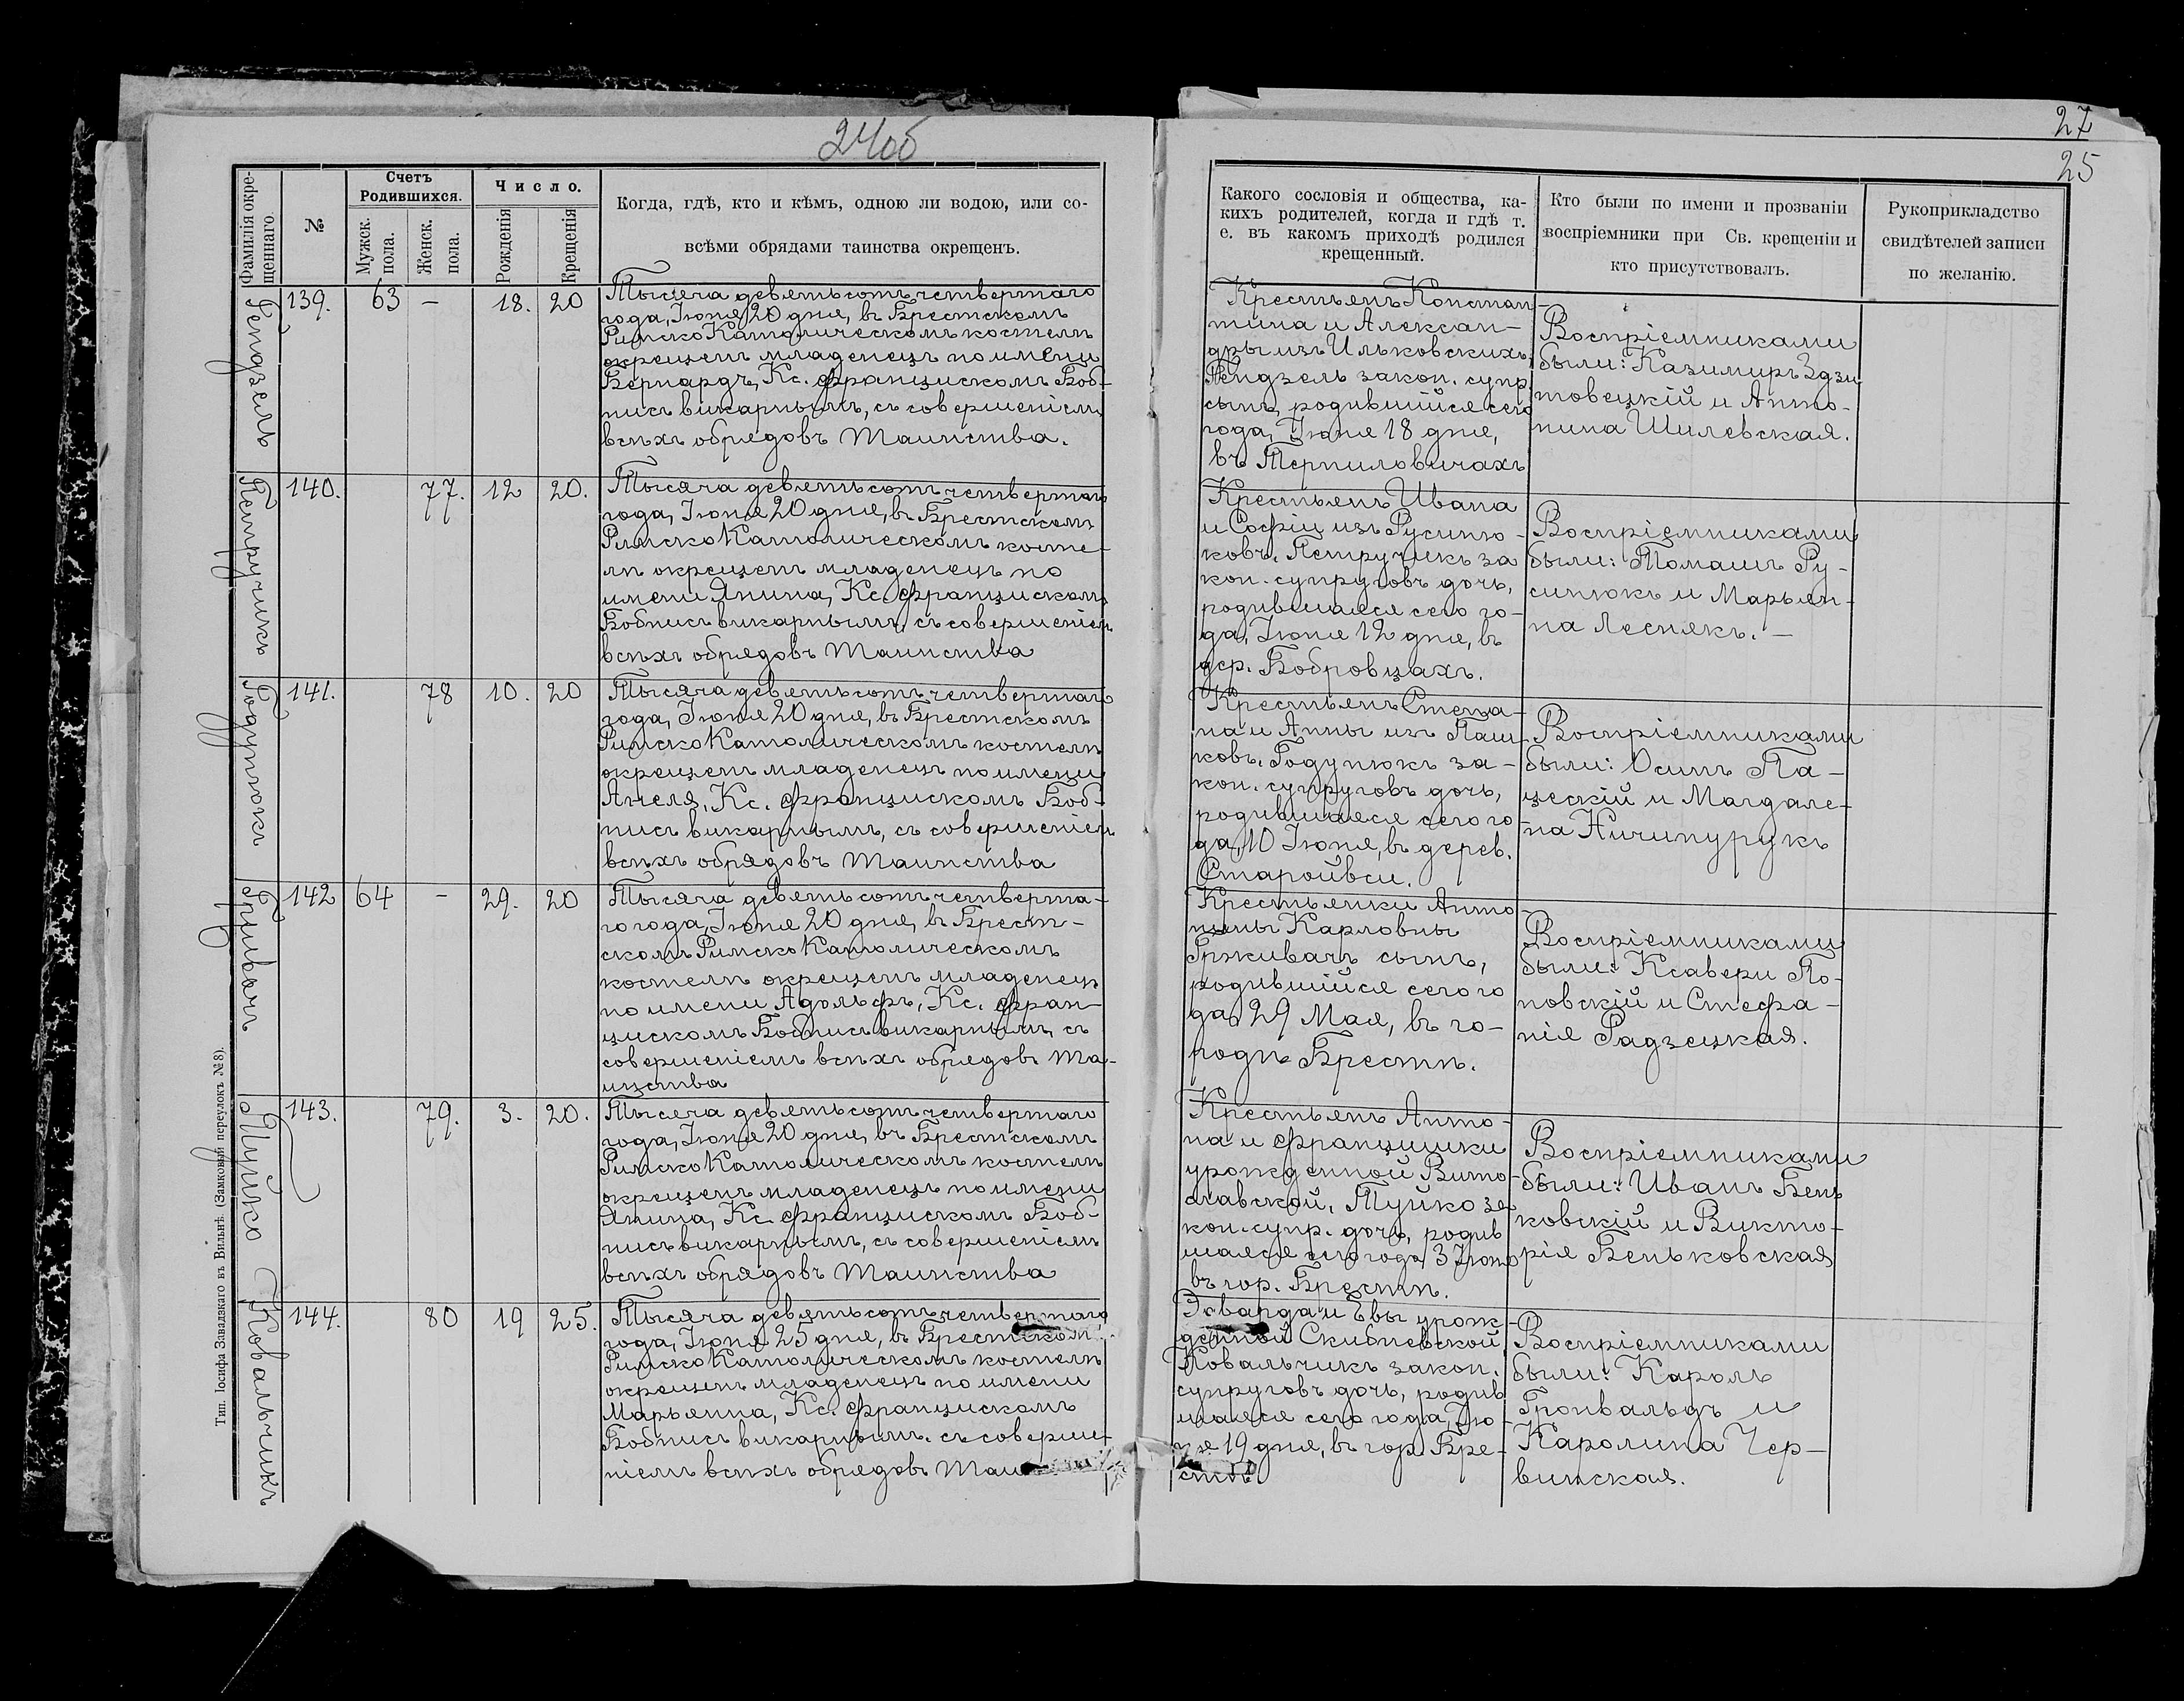 24об
27
25
Фамилія окре-
щеннаго.
№
Счетъ
Родившихся.
Мужск.
пола.
Женск.
пола.
Число.
Рожденія
Крещенія
Когда, гдѣ, кто и кѣмъ, одною ли водою, или со-
всѣми обрядами таинства окрещенъ.
Какого сословія и общества, ка-
кихъ родителей, когда и гдѣ т.
е. въ какомъ приходѣ родился
крещенный.
Кто были по имени и прозванію
воспріемники при Св. крещеніи и
кто присутствовалъ.
Рукоприкладство
свидѣтелей записи
по желанію.
139. 63 – 18. 20
Тысяча девятьсотъ четвертаго
года, Іюня 20 дня, въ Брестскомъ
Римско Католическомъ костелѣ
окрещенъ младенецъ по имени
Бернардъ, Кс. Францискомъ Боб-
нисъ викарнымъ, съ совершеніемъ
всѣхъ обрядовъ Таинства.
Крестьянъ Констан-
тина и Александ-
ры изъ Ильковскихъ,
закон. супр.
сынъ, родившійся сего
года, Іюня 18 дня,
въ Терпиловичахъ
Воспріемниками
были: Казимиръ Здзи
товецкій и Анто-
нина Шилевская.
Петручикъ
140. 77. 12 20.
Тысяча девятьсотъ четвертаго
года, Іюня 20 дня, въ Брестскомъ
Римско Католическомъ косте-
лѣ окрещенъ младенецъ по
имени Янина, Кс. Францискомъ
Бобнисъ викарнымъ, съ совершеніемъ
всѣхъ обрядовъ Таинства
Крестьянъ Ивана
и Софіи изъ Русиню-
ковъ, Петручикъ за
кон. супруговъ дочь,
родившаяся сего го-
да, Іюня 12 дня, въ
дер. Бобровцахъ.
Воспріемниками
были: Томашъ Ру-
синюкъ и Марьян-
на Леснякъ. –
Годунюкъ
141. 78 10. 20
Тысяча девятьсотъ четвертаго
года, Іюня 20 дня, въ Брестскомъ
Римско Католическомъ костелѣ
окрещенъ младенецъ по имени
Анеля, Кс. Францискомъ Боб-
нисъ викарнымъ, съ совершеніемъ
всѣхъ обрядовъ Таинства
Крестьянъ Степа-
на и Анны изъ Паш-
ковъ, Годунюкъ за-
кон. супруговъ дочь,
родившаяся сего го
да, 10 Іюня, въ дерев.
Старойвси.
Воспріемниками
были: Осипъ Па-
цескій и Магдале-
на Ничипурукъ
142 64 – 29. 20
Тысяча девятьсотъ четверта-
го года, Іюня 20 дня, въ Брест-
скомъ Римско Католическомъ
костелѣ окрещенъ младенецъ
по имени Адольфъ, Кс. Фран-
цискомъ Бобнисъ викарнымъ, съ
совершеніемъ всѣхъ обрядовъ Та-
инства
Крестьянки Анто-
нины Карловны
Грживачъ сынъ,
родившійся сего го
да, 29 Мая, въ го-
родѣ Брестѣ.
Воспріемниками
были: Ксавери По-
повскій и Стефа-
нія Радзецкая.
Туйко
143. 79. 3. 20.
Тысяча девятьсотъ четвертаго
года, Іюня 20 дня, въ Брестскомъ
Римско Католическомъ костелѣ
окрещенъ младенецъ по имени
Янина, Кс. Францискомъ Боб-
нисъ викарнымъ, съ совершеніемъ
всѣхъ обрядовъ Таинства
Крестьянъ Анто-
на и Францишки
урожденной Вито-
славской, Туйко за
кон. супр. дочь, родив
шаяся сего года, 3 Іюня
въ гор. Брестѣ.
Воспріемниками
были: Иванъ Бень
ковскій и Викто-
рія Беньковская
Ковальчикъ
144. 80 19 25.
Тысяча девятьсотъ четвертаго
года, Іюня 25 дня, въ Брестскомъ
Римско Католическомъ костелѣ
окрещенъ младенецъ по имени
Марьянна, Кс. Францискомъ
Бобнисъ викарнымъ, съ соверше-
ніемъ всѣхъ обрядовъ Таин
Эдварда и Евы урож-
денной Скибневской,
Ковальчикъ закон.
супруговъ дочь, родив
шаяся сего года, Ію-
ня 19 дня, въ гор. Бре-
стѣ
Воспріемниками
были: Кароль
Гронвальдъ и
Каролина Чер-
винская.
Тип. Іосифа Завадзкаго въ Вильнѣ. (Замковый переулокъ № 8).